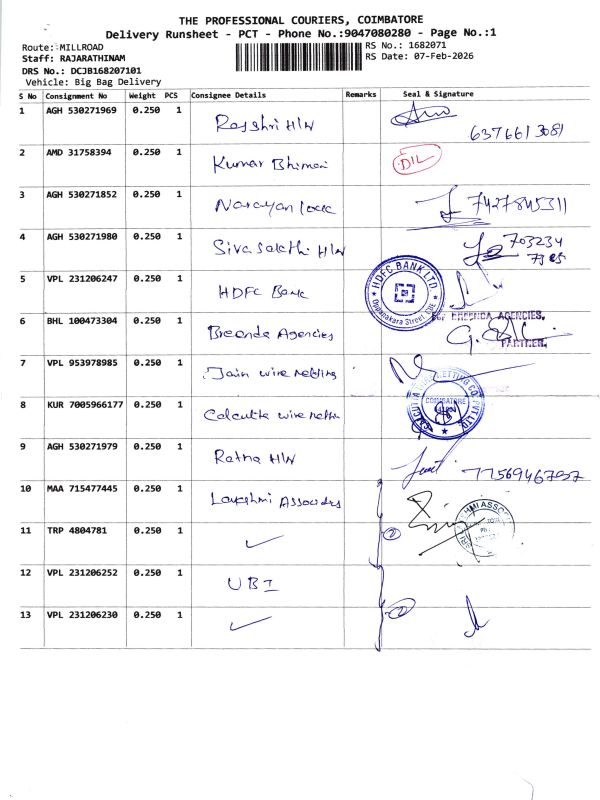 THE PROFESSIONAL COURIERS, COIMBATORE
Delivery Runsheet - PCT - Phone No.:9047080280 - Page No.:1
Route: MILLROAD
RS No.: 1682071
Staff: RAJARATHINAM
RS Date: 07-Feb-2026
DRS No.: DCJB168207101
Vehicle: Big Bag Delivery
S No Consignment No Weight PCS Consignee Details Remarks Seal & Signature
1 AGH 530271969 0.250 1 Rajshri H/W
6376613081
2 AMD 31758394 0.250 1 Kumar D/L
3 AGH 530271852 0.250 1 Narayan 7427845311
4 AGH 530271980 0.250 1 Sivasakthi H/W 703234
5 VPL 231206247 0.250 1 HDFC Bank HDFC BANK LTD.
Oppanakara Street, CBE
6 BHL 100473304 0.250 1 Breenda Agencies AGENCIES,
PARTNER.
7 VPL 953978985 0.250 1 Jain wire Netting
8 KUR 7005966177 0.250 1 Calcutta wire COIMBATORE
9 AGH 530271979 0.250 1 Ratna H/W
10 MAA 715477445 0.250 1 Lakshmi Associates
11 TRP 4804781 0.250 1 ✓ 2
12 VPL 231206252 0.250 1 UBI
13 VPL 231206230 0.250 1 ✓ 2